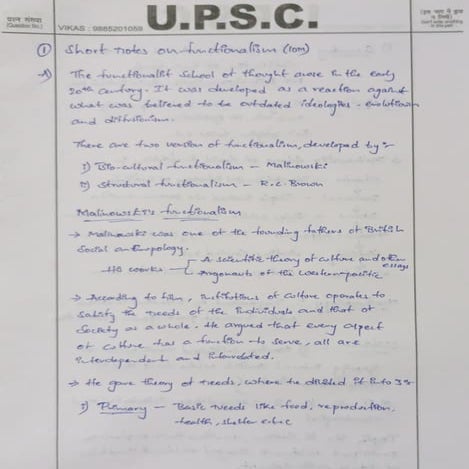 प्रश्न संख्या
(Question No.)
VIKAS : 9885201059
U.P.S.C.
(Don't write anything in this part)
① Short notes on functionalism (10M)
A) The functionalist School of thought arose in the early
20th century. It was developed as a reaction against
what was believed to be outdated ideologies - evolutionism
and diffusionism.
There are two version of functionalism, developed by :-
i) Bio-cultural functionalism - Malinowski
ii) Structural functionalism - R.C. Brown
Malinowski's functionalism
→ Malinowski was one of the founding fathers of British
Social anthropology.
His works - A scientific theory of culture and other essays
Argonauts of the Western pacific
→ According to him, institutions of culture operates to
satisfy the needs of the individuals and that of
society as a whole. He argued that every aspect
of culture has a function to serve, all are
interdependent and interrelated.
→ He gave theory of needs, where he divided it into 3 :-
i) Primary - Basic needs like food, reproduction,
health, shelter e.t.c